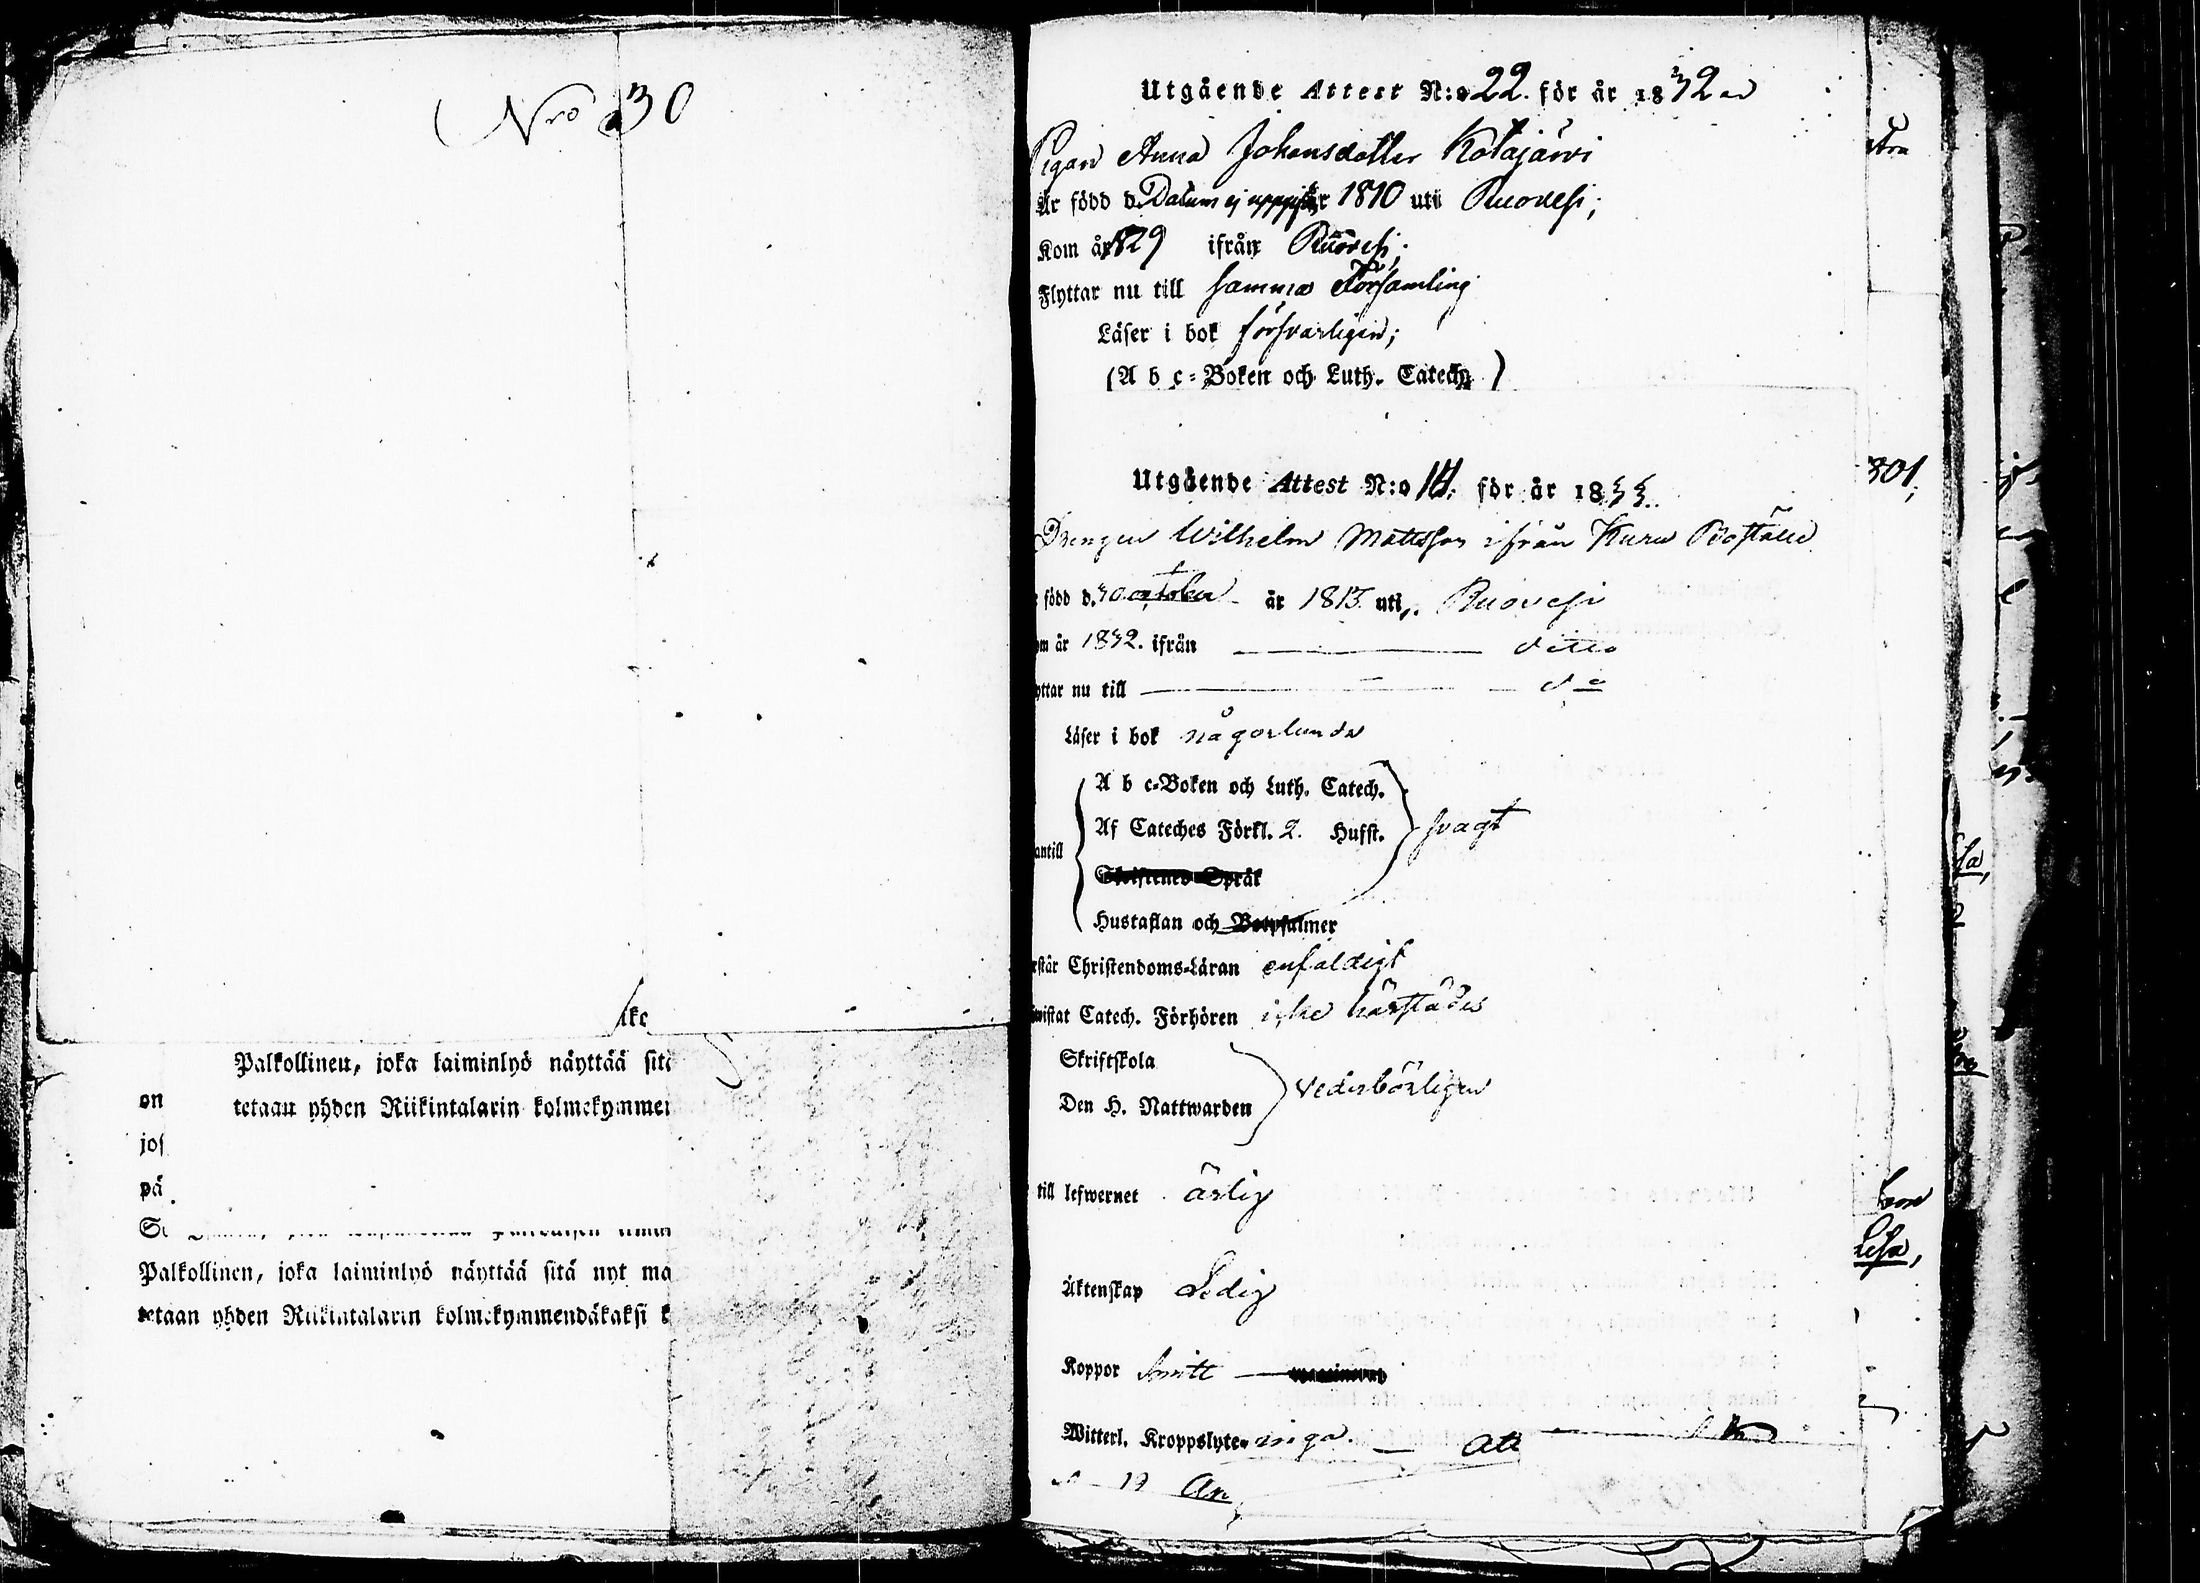 Nro 30
Palkollinen, joka laiminlyö näyttää sitä
on tetaan yhden Riikintalarin kolmekymmen
jos
pä
Palkollinen, joka laiminlyö näyttää sitä nyt ma
tetaan yhden Riikintalarin kolmekymmendäkaksi k
Utgående Attest N:o 22. för år 1832
Pigan Anna Johansdotter Kotajärvi
Är född d. Datum ej år 1810 uti Ruovesi;
Kom år 1829 ifrån Ruovesi;
Flyttar nu till samma Församling
Läser i bok försvarligen;
(A b c-Boken och Luth. Catech. )
Utgående Attest N:o 14. för år 1833.
Drengen Wilhelm Mattsson ifrån Kuru Boställe
född d. 30 october år 1813 uti Ruovesi
om år 1832. ifrån — ditto
yttar nu till — do
Läser i bok någorlunda
A b c-Boken och Luth. Catech.
Af Cateches Förkl. 2. Hufst. svagt
antill
Skriftenes Språk
Hustaflan och Botpsalmer
rstår Christendoms-Läran enfaldigt
wistat Catech. Förhören icke härstädes
Skriftskola
Den H. Nattwarden vederbörligen
till lefwernet ärlig
Äktenskap Ledig
Koppor haft — vaccinerad
Witterl. Kroppslyte inga.
301,